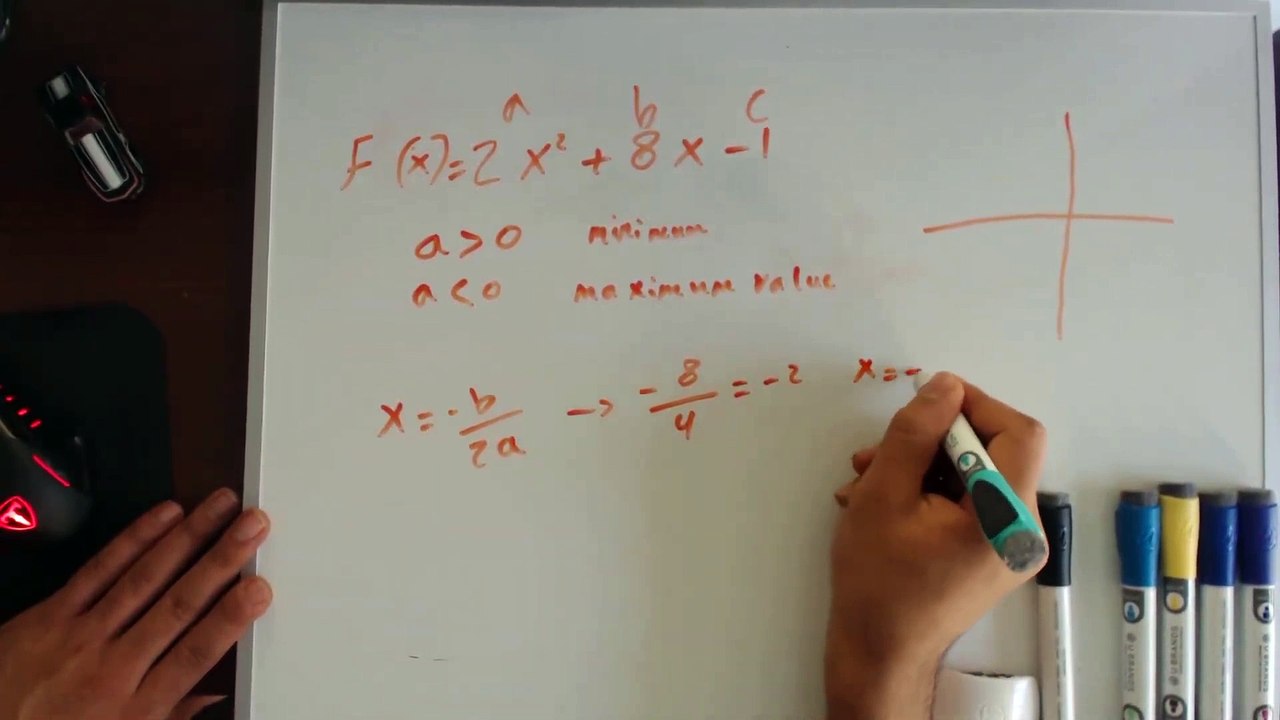 a b c
F(x)=2x²+8x-1
a>0 minimum
a<0 maximum value
x=-b/2a -> -8/4=-2 x=-